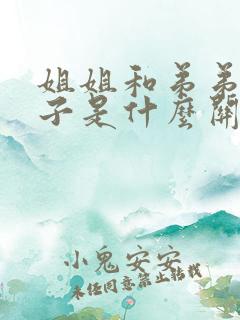 姐姐和弟弟
子是什麼關
小鬼安安
未经同意禁止转载